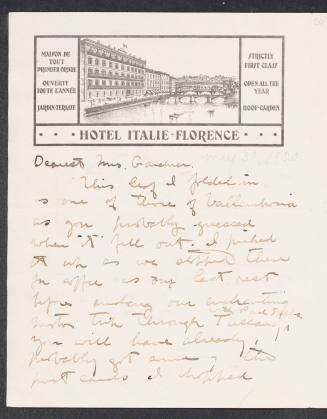 MAISON DE
TOUT
PREMIER ORDRE
OUVERTE
TOUTE L'ANNÉE
JARDIN-TERASSE
STRICTLY
FIRST CLASS
OPEN ALL THE
YEAR
ROOF-GARDEN
HOTEL ITALIE-FLORENCE
May 30, 1920
Dearest Mrs. Gardner.
This leaf I folded in
is one of those of Vallombrosa
as you probably guessed
when "it" fell out. I picked
it up as we stopped there
for coffee as our last rest
before ending our enchanting
motor trip through Tuscany,
you will have already,
probably got some of the
post cards I dropped